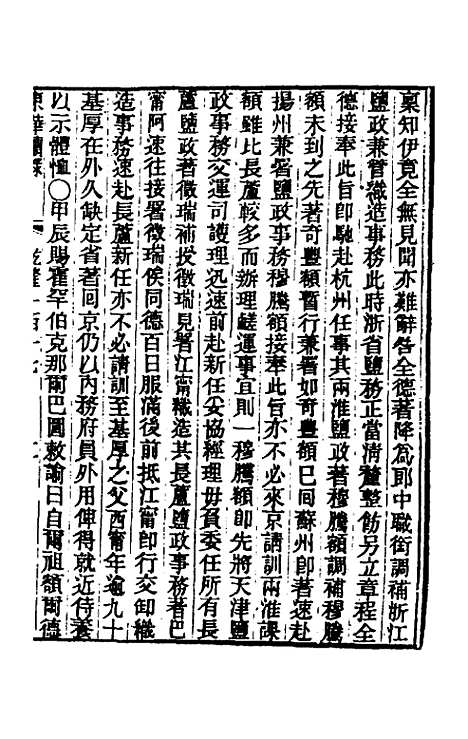 稟知伊竟全無見聞亦難辭咎全德著降爲郎中職銜調補浙江
鹽政兼管織造事務此時浙省鹽務正當清釐整飭另立章程全
德接奉此旨卽馳赴杭州任事其兩淮鹽政著穆騰額調補穆騰
額未到之先著奇豐額暫行兼署如奇豐額已囘蘇州卽著速赴
揚州兼署鹽政事務穆騰額接奉此旨亦不必來京請訓兩淮課
額雖比長蘆較多而辦理鹺運事宜則一穆騰額卽先將天津鹽
政事務交運司護理迅速前赴新任妥協經理毋負委任所有長
蘆鹽政著徵瑞補授徵瑞見署江甯織造其長蘆鹽政事務著巴
甯阿速往接署徵瑞俟同德百日服滿後前抵江甯卽行交卸織
造事務速赴長蘆新任亦不必請訓至基厚之父西甯年逾九十
基厚在外久缺定省著囘京仍以內務府員外用俾得就近侍養
以示體恤○甲辰賜霍罕伯克那爾巴圖敕諭曰自爾祖額爾德
東華續錄 乾隆一百十七